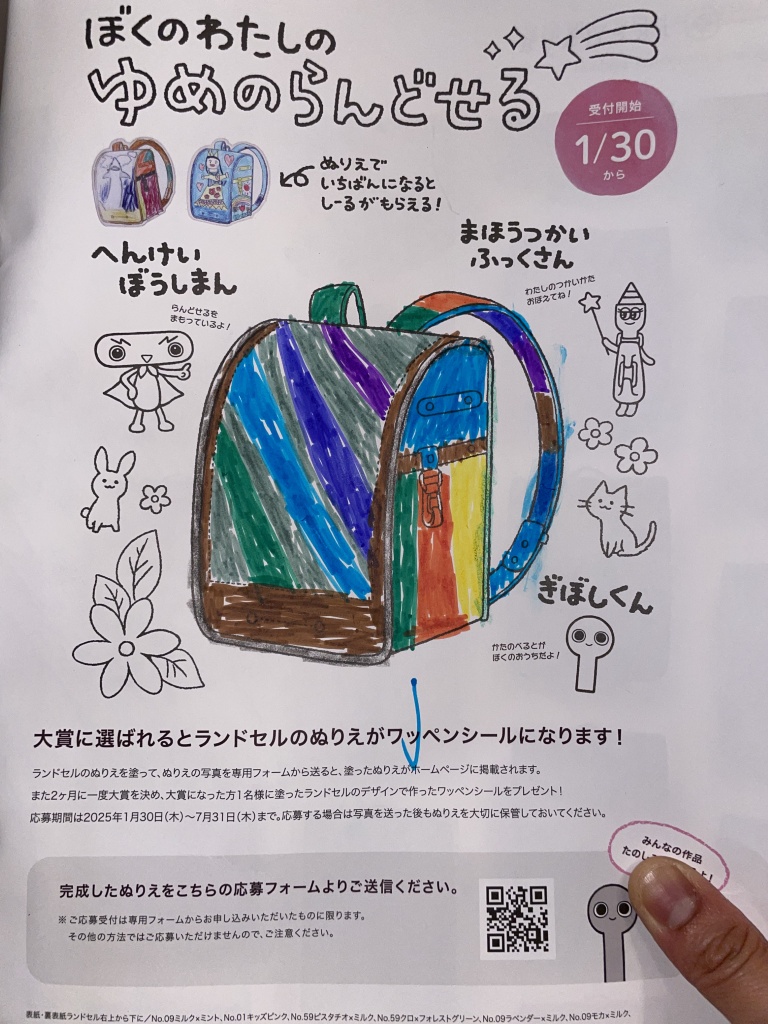 ぼくのわたしの
ゆめのらんどせる
受付開始
1/30
から
ぬりえで
いちばんになると
しーるがもらえる!
へんけい
ぼうしまん
らんどせるを
まもっているよ!
まほうつかい
ふっくさん
わたしのつかいかた
おぼえてね!
ぎぼしくん
かたのべるとが
ぼくのおうちだよ!
大賞に選ばれるとランドセルのぬりえがワッペンシールになります!
ランドセルのぬりえを塗って、ぬりえの写真を専用フォームから送ると、塗ったぬりえがホームページに掲載されます。
また2ヶ月に一度大賞を決め、大賞になった方1名様に塗ったランドセルのデザインで作ったワッペンシールをプレゼント!
応募期間は2025年1月30日(木)〜7月31日(木)まで。応募する場合は写真を送った後もぬりえを大切に保管しておいてください。
みんなの作品
たのし
完成したぬりえをこちらの応募フォームよりご送信ください。
※ご応募受付は専用フォームからお申し込みいただいたものに限ります。
その他の方法ではご応募いただけませんので、ご注意ください。
表紙・裏表紙ランドセル右上から下に/No.09ミルク×ミント、No.01キッズピンク、No.59ピスタチオ×ミルク、No.59クロ×フォレストグリーン、No.09ラベンダー×ミルク、No.09モカ×ミルク、